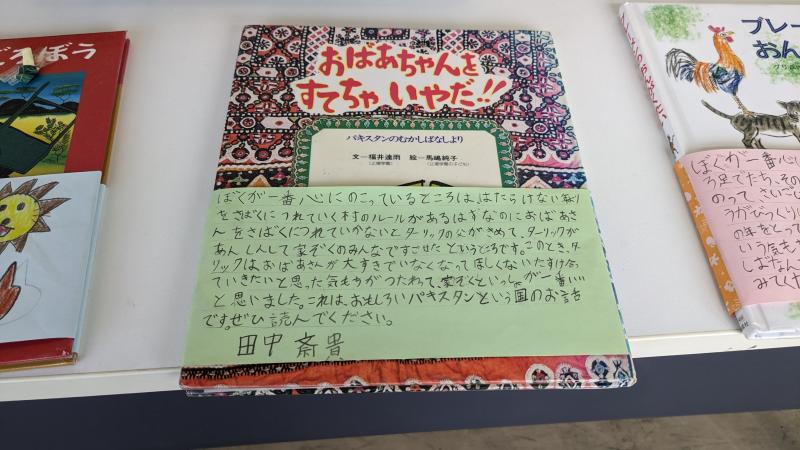 どろぼう
おばあちゃんを
すてちゃいやだ!!
パキスタンのむかしばなしより
文―福井達雨 絵―馬嶋純子
ぼくが一番心にのこっているところは、はたらけない
をさばくにつれていく村のルールがあるはずなのにおばあさ
んをさばくにつれていかないとターリックの父がきめて、ターリックが
あんしんして家ぞくのみんなですごせたというところです。このとき、タ
ーリックはおばあさんが大すきでいなくなってほしくないたすけ合っ
ていきたいと思った気もちがつたわって、家ぞくといっしょが一番いい
と思いました。これは、おもしろいパキスタンという国のお話
です。ぜひ読んでください。
田中 斎貴
ブレー
おん
ぼくが一番心に
ろ足でたち、その
のって、さいご
うがびっくり
の年をとって
いう気も
しばなし
みてく